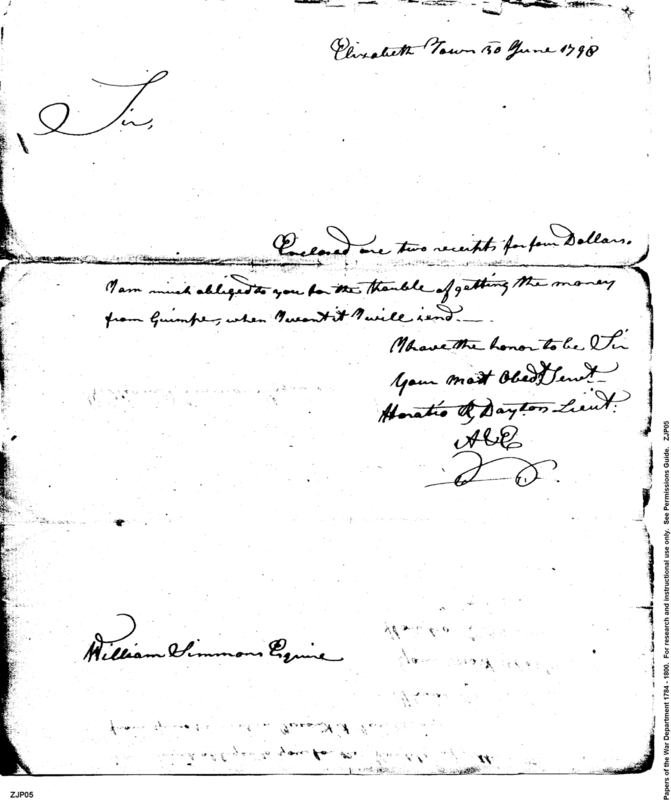 Elizabeth Town 30 June 1798
Sir,
Enclosed are two receipts for four Dollars.
I am much obliged to you for the trouble of getting the money
from Guimpe, when I want it I will send.
I have the honor to be Sir
Your most Obedt Servt
Horatio R. Dayton Lieut.
A & E
William Simmons Esquire
ZJP05
Papers of the War Department 1784 - 1800. For research and instructional use only. See Permissions Guide. ZJP05